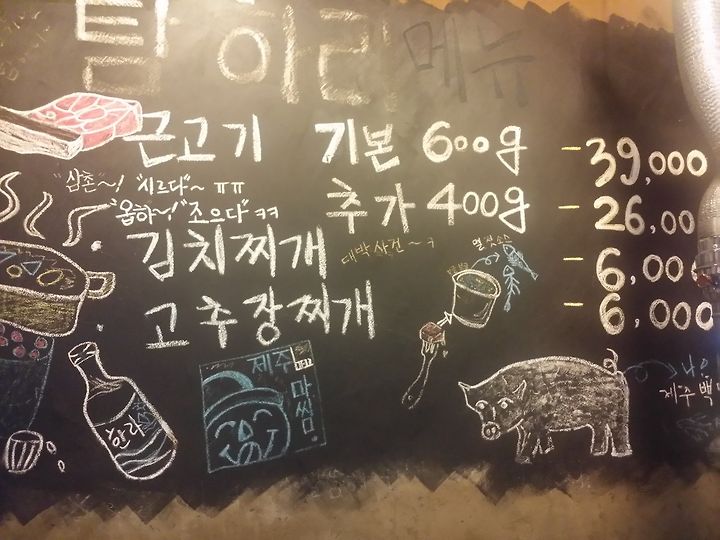 탐하리 메뉴
근고기 기본 600g - 39,000
"삼촌~! "시르다"~ ㅠㅠ
"옵하~! "조으다" ㅋㅋ 추가 400g - 26,00
김치찌개 - 6,00
대박사건~ㅋ
멸젓소스
고추장찌개 - 6,000
제주
마씸
한라
제주백